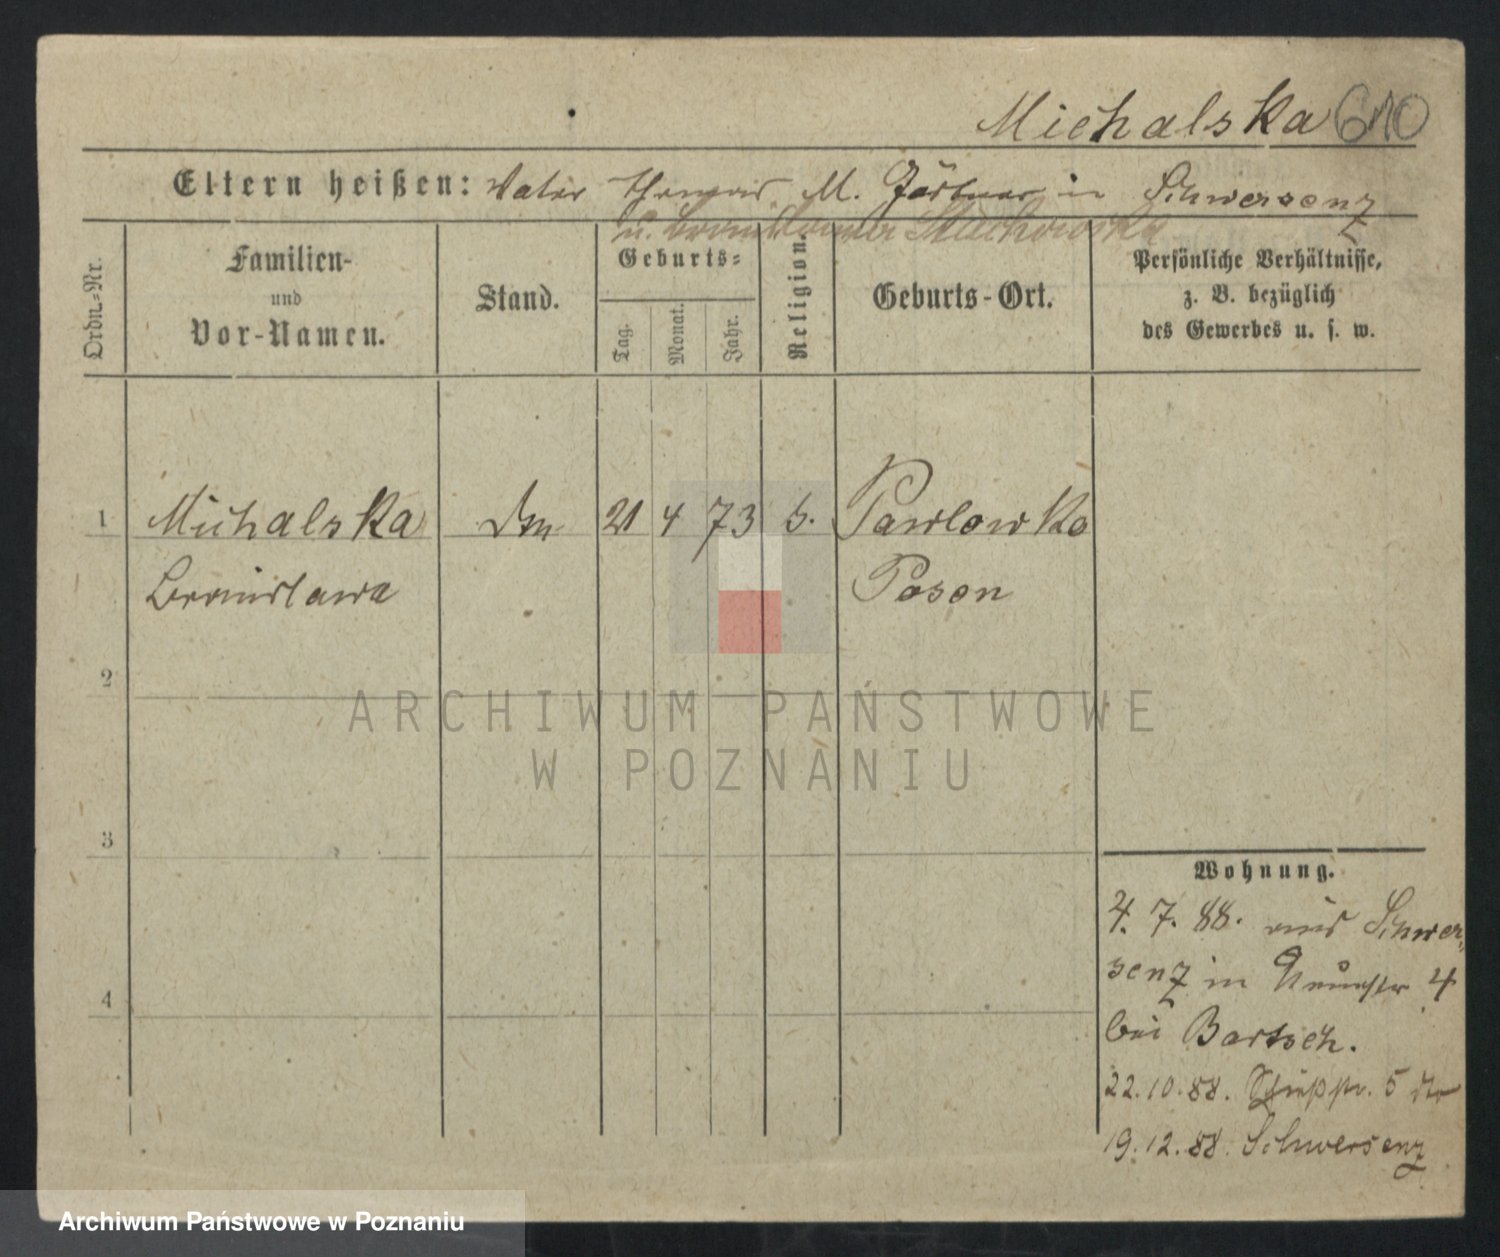 Michalska 610
Eltern heißen: Vater Thomas M. Gärtner in Schwersenz
u. Bronislawa Stachowska
Ordn.-Nr.
Familien-
und
Vor-Namen.
Stand.
Geburts-
Tag.
Monat.
Jahr.
Religion.
Geburts-Ort.
Persönliche Verhältnisse,
z. B. bezüglich
des Gewerbes u. s. w.
1 Michalska 21 4 73 Pawlowko
Bronislawa Posen
2
3
4
Wohnung.
4. 7. 88. aus Schwer-
senz in 4
bei Bartsch.
22.10.88. 5
19.12.88. Schwersenz
ARCHIWUM PAŃSTWOWE
W POZNANIU
Archiwum Państwowe w Poznaniu